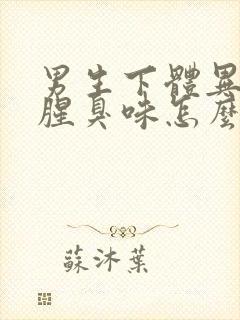 男生下體異
腥臭味怎麼
蘇沐葉